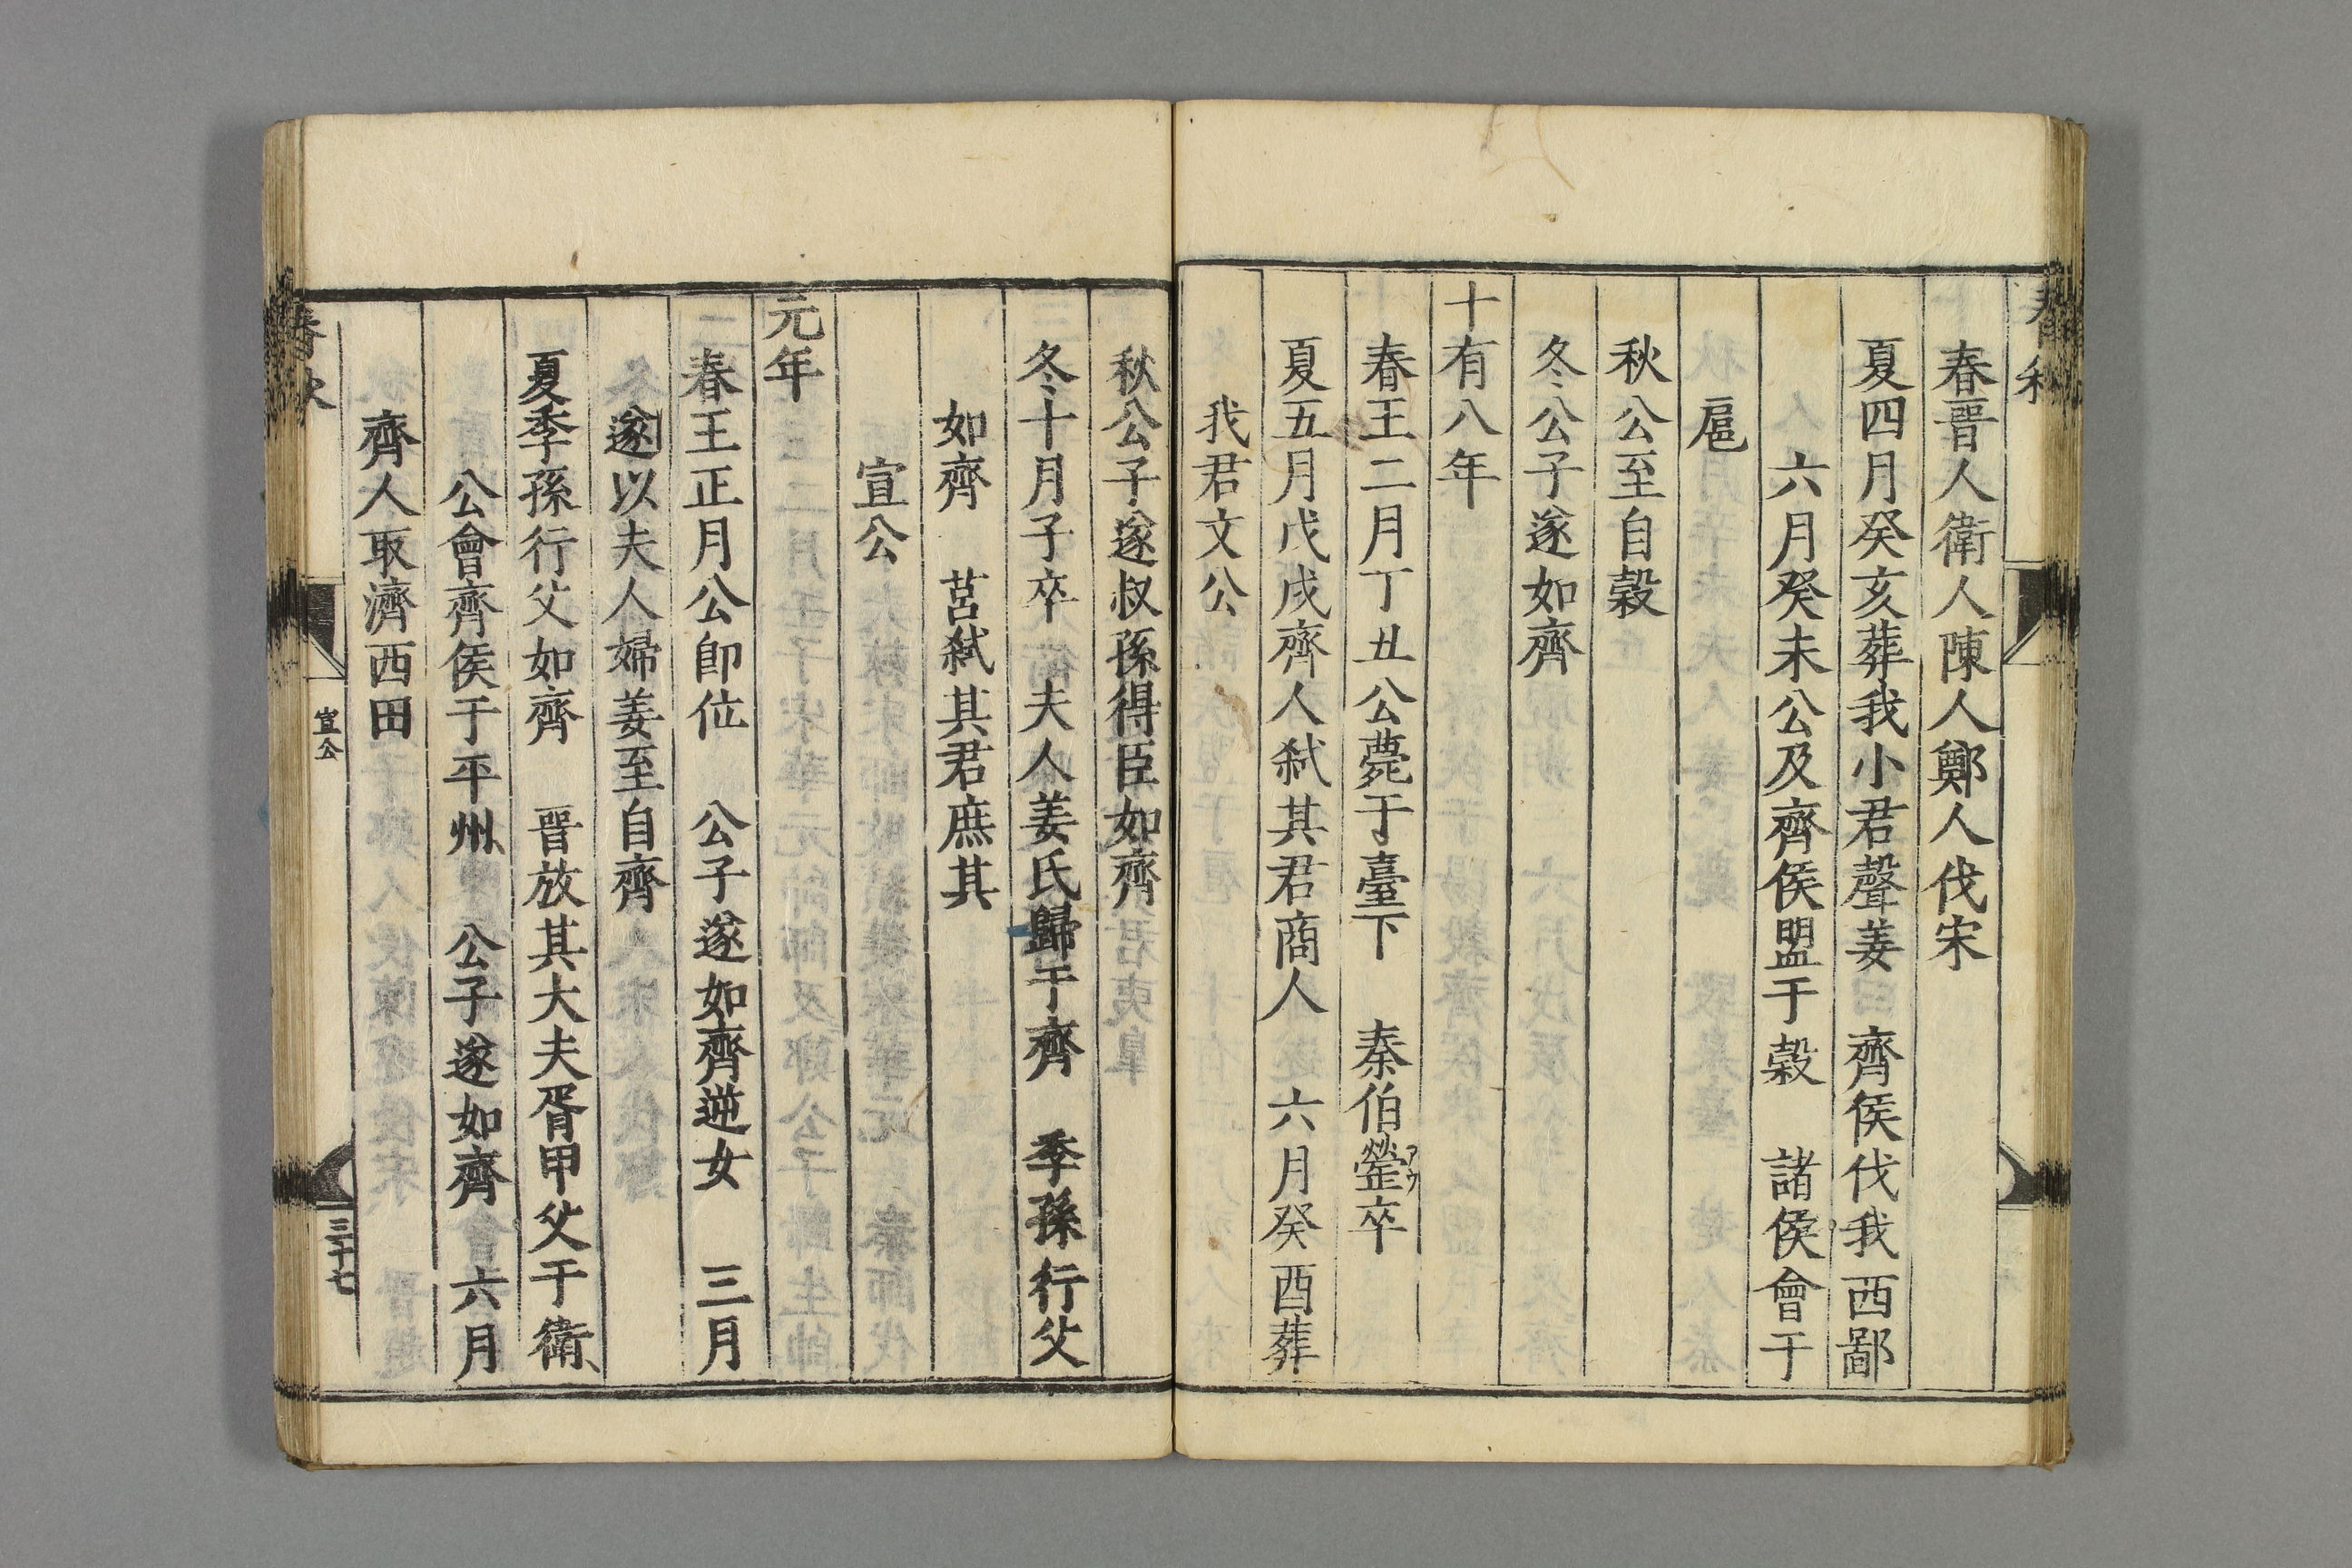 春晉人衛人陳人鄭人伐宋
夏四月癸亥葬我小君聲姜　齊侯伐我西鄙
六月癸未公及齊侯盟于穀　諸侯會于
扈
秋公至自穀
冬公子遂如齊
十有八年
春王二月丁丑公薨于臺下　秦伯罃卒
夏五月戊戌齊人弑其君商人　六月癸酉葬
我君文公
秋公子遂叔孫得臣如齊
冬十月子卒　夫人姜氏歸于齊　季孫行父
如齊　莒弑其君庶其
宣公
元年
春王正月公卽位　公子遂如齊逆女　三月
遂以夫人婦姜至自齊
夏季孫行父如齊　晉放其大夫胥甲父于衛
公會齊侯于平州　公子遂如齊　六月
齊人取濟西田
春秋
宣公
三十七